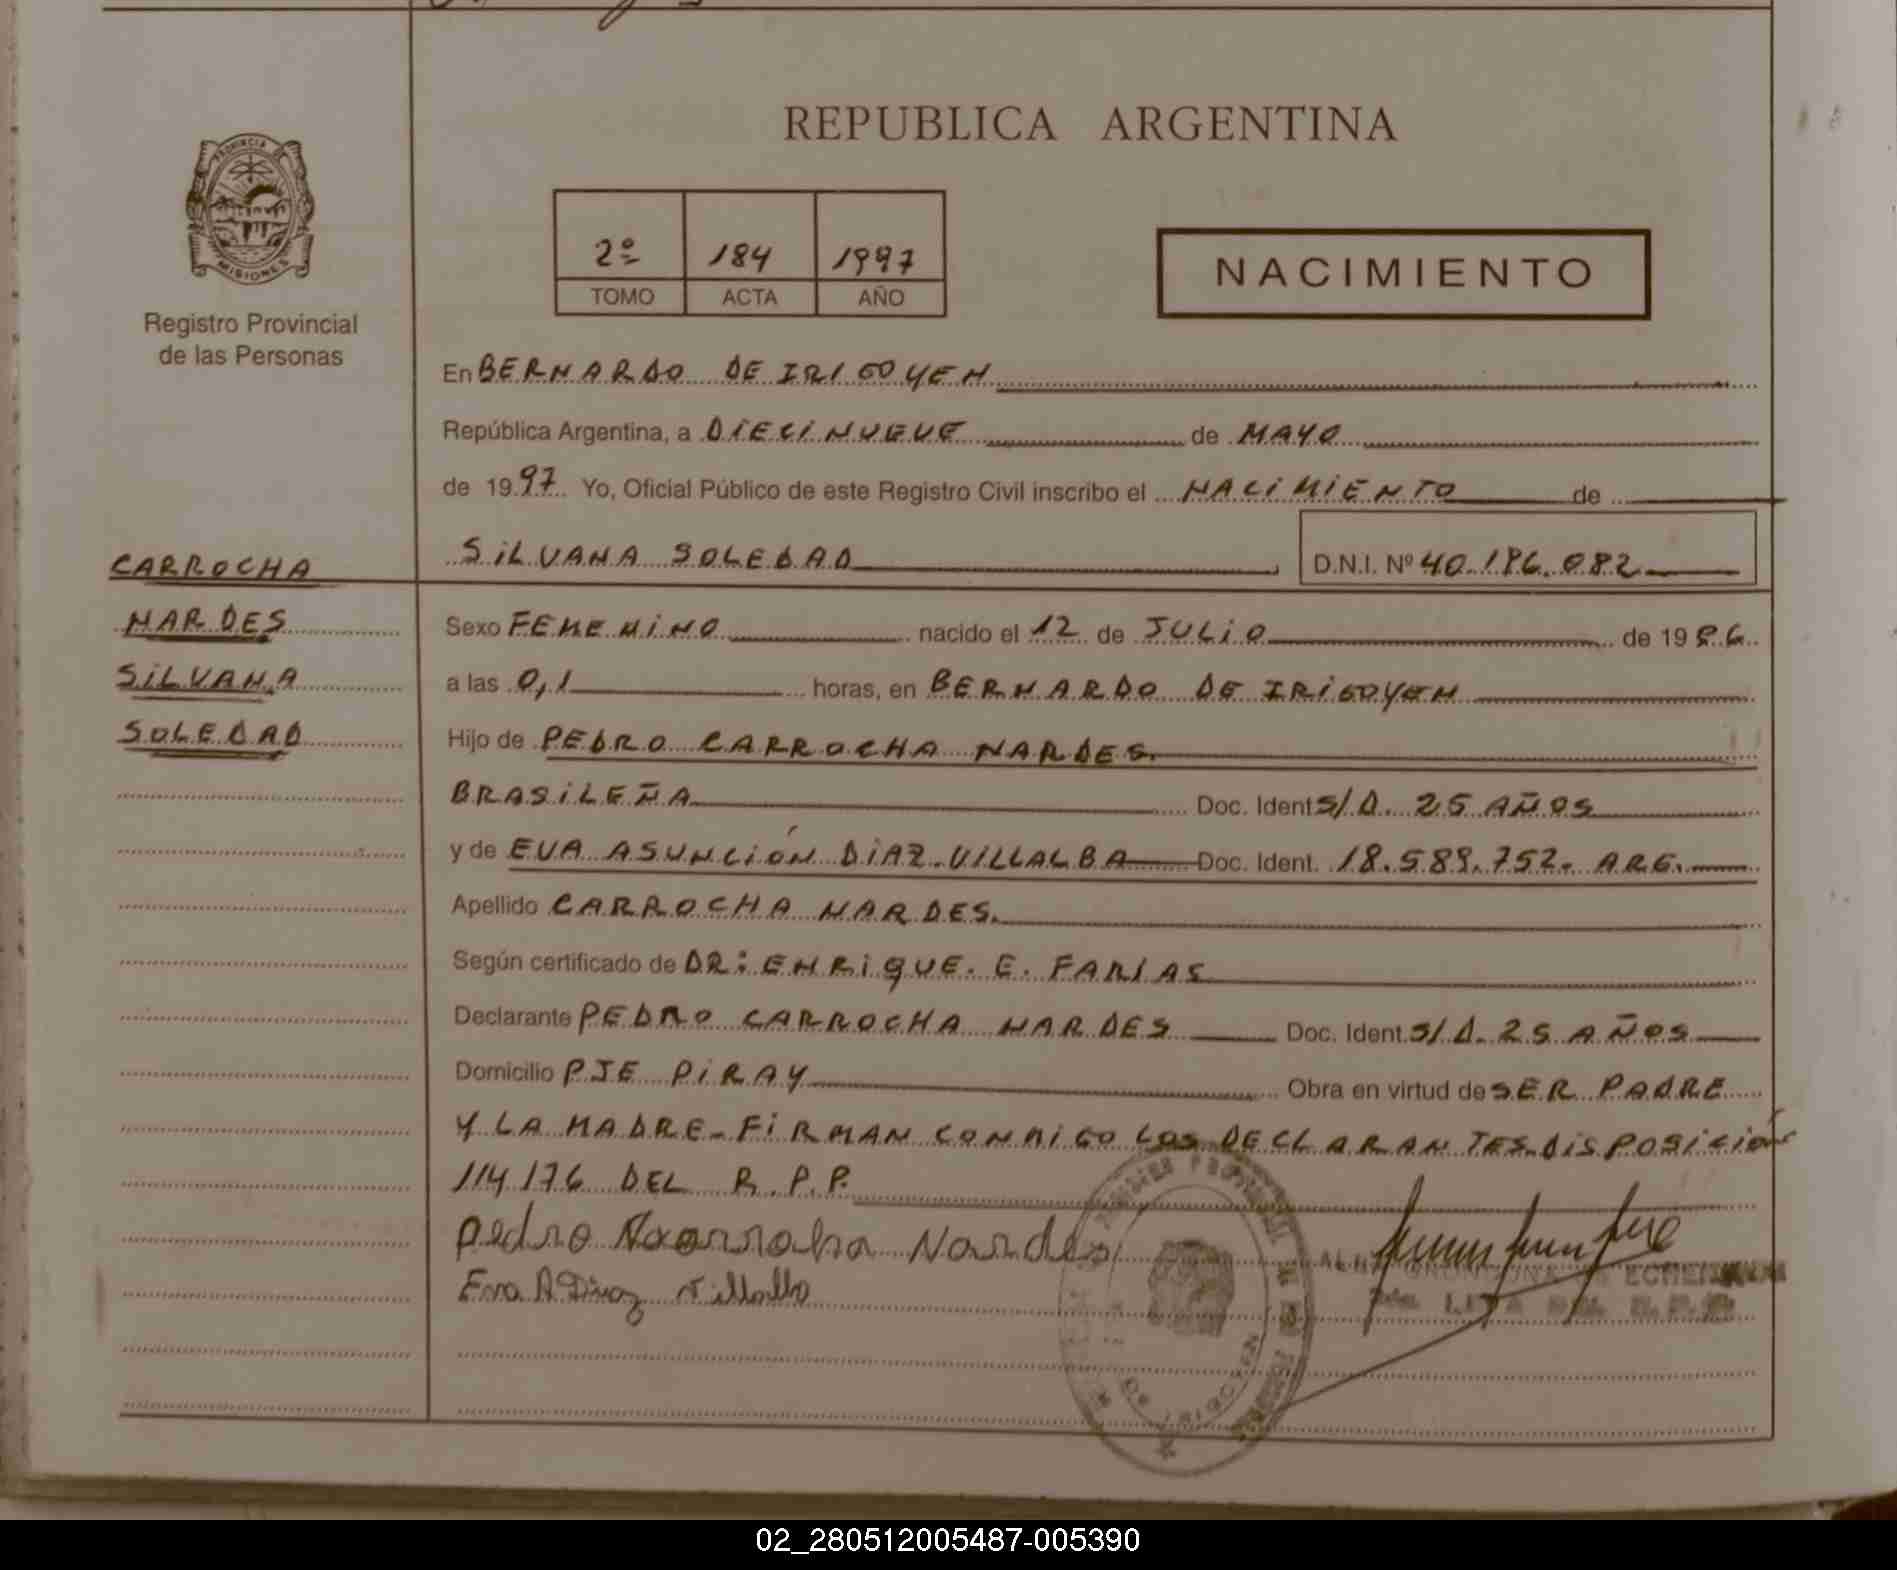 REPUBLICA ARGENTINA
PROVINCIA DE
MISIONES
Registro Provincial
de las Personas
2º 184 1997
TOMO ACTA AÑO
NACIMIENTO
En BERNARDO DE IRIGOYEN
República Argentina, a DIECINUEVE de MAYO
de 1997 Yo, Oficial Público de este Registro Civil inscribo el NACIMIENTO de
SILVANA SOLEDAD D.N.I. Nº 40.196.082
CARROCHA
NARDES
SILVANA
SOLEDAD
Sexo FEMENINO nacido el 12 de JULIO de 1986
a las 0,1 horas, en BERNARDO DE IRIGOYEN
Hijo de PEDRO CARROCHA NARDES.
BRASILEÑA Doc. Ident S/D. 25 AÑOS
y de EVA ASUNCIÓN DIAZ VILLALBA Doc. Ident. 18.589.752. ARG.
Apellido CARROCHA NARDES.
Según certificado de DR: ENRIQUE. E. FARIAS
Declarante PEDRO CARROCHA NARDES Doc. Ident. S/D. 25 AÑOS
Domicilio PJE PIRAY Obra en virtud de SER PADRE
Y LA MADRE - FIRMAN CONMIGO LOS DECLARANTES. DISPOSICIÓN
114176 DEL R.P.P.
Pedro Carrocha Nardes
Eva A Diaz Villalba
02_280512005487-005390